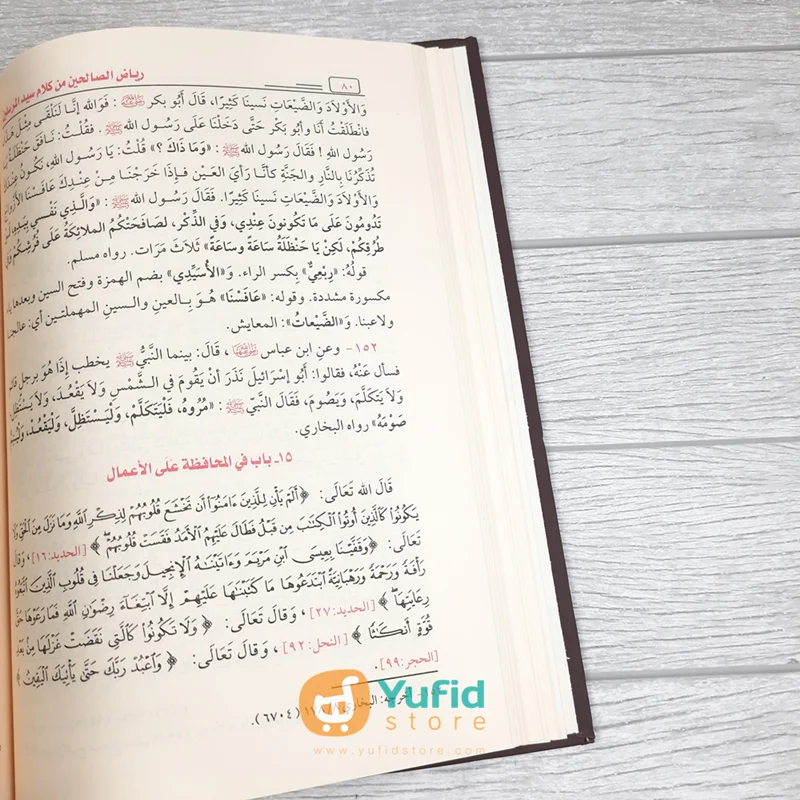 ٨٠
رياض الصالحين من كلام سيد المرسلين
وَالأَوْلاَدَ وَالضَّيْعَاتِ نَسِينَا كَثِيرًا، قَالَ أَبُو بكر رضي الله عنه : فَوَالله إنَّا لَنَلْقَى مِثْلَ هَذَا
فانْطَلَقْتُ أنَا وأبُو بَكْر حَتَّى دَخَلْنَا عَلَى رَسُول الله ﷺ . فقُلْتُ: نَافَقَ حَنْظَلَةُ
رَسُول اللهِ ! فَقَالَ رَسُول الله ﷺ : «وَمَا ذَاكَ ؟» قُلْتُ: يَا رَسُول اللهِ، نَكُونُ عِنْدَكَ
تُذَكِّرُنَا بِالنَّارِ والجَنَّةِ كأنَّا رَأيَ العَيْن فإذَا خَرَجْنَا مِنْ عِنْدِكَ عَافَسْنَا الأَزْوَاجَ
وَالأَوْلاَدَ وَالضَّيْعَاتِ نَسِينَا كَثِيرًا. فَقَالَ رَسُول الله ﷺ : «وَالَّذِي نَفْسِي بِيَدِهِ، لَوْ
تَدُومُونَ عَلَى مَا تَكُونونَ عِنْدِي، وَفِي الذِّكْر، لصَافَحَتْكُمُ الملائِكَةُ عَلَى فُرُشِكُمْ وفي
طُرُقِكُمْ، لَكِنْ يَا حَنْظَلَةُ سَاعَةً وسَاعَةً» ثَلاَثَ مَرَات. رواه مسلم.
قولُهُ: «رِبْعِيٌّ» بِكسر الراء. وَ«الأُسَيِّدِي» بضم الهمزة وفتح السين وبعدها ياء
مكسورة مشددة. وقوله: «عَافَسْنَا» هُوَ بِالعينِ والسينِ المهملتينِ أي: عالجنا
ولاعبنا. وَ«الضَّيْعاتُ»: المعايش.
١٥٢- وعن ابن عباس رضي الله عنهما ، قَالَ: بينما النَّبيُّ ﷺ يخطب إذَا هُوَ برجلٍ قائم
فسأل عَنْهُ، فقالوا: أَبُو إسْرَائيلَ نَذَرَ أنْ يَقُومَ في الشَّمْسِ وَلاَ يَقْعُدَ، وَلاَ يَسْتَظِلَّ
وَلاَ يَتَكَلَّمَ، وَيَصُومَ، فَقَالَ النَّبيّ ﷺ : «مُرُوهُ، فَلْيَتَكَلَّمْ، وَلْيَسْتَظِلَّ، وَلْيَقْعُدْ، وَلْيُتِمَّ
صَوْمَهُ» رواه البخاري.
١٥ـ باب في المحافظة عَلَى الأعمال
قَالَ الله تَعَالَى: ﴿أَلَمْ يَأْنِ لِلَّذِينَ ءَامَنُوٓا۟ أَن تَخْشَعَ قُلُوبُهُمْ لِذِكْرِ ٱللَّهِ وَمَا نَزَلَ مِنَ ٱلْحَقِّ وَلَا
يَكُونُوا۟ كَٱلَّذِينَ أُوتُوا۟ ٱلْكِتَٰبَ مِن قَبْلُ فَطَالَ عَلَيْهِمُ ٱلْأَمَدُ فَقَسَتْ قُلُوبُهُمْ﴾ [الحديد:١٦]، وَقَالَ
تَعَالَى: ﴿وَقَفَّيْنَا بِعِيسَى ٱبْنِ مَرْيَمَ وَءَاتَيْنَٰهُ ٱلْإِنجِيلَ وَجَعَلْنَا فِى قُلُوبِ ٱلَّذِينَ ٱتَّبَعُوهُ
رَأْفَةً وَرَحْمَةً وَرَهْبَانِيَّةً ٱبْتَدَعُوهَا مَا كَتَبْنَٰهَا عَلَيْهِمْ إِلَّا ٱبْتِغَآءَ رِضْوَٰنِ ٱللَّهِ فَمَا رَعَوْهَا حَقَّ
رِعَايَتِهَا﴾ [الحديد:٢٧] ، وَقَالَ تَعَالَى: ﴿وَلَا تَكُونُوا۟ كَٱلَّتِى نَقَضَتْ غَزْلَهَا مِنۢ بَعْدِ
قُوَّةٍ أَنكَٰثًا﴾ [النحل:٩٢] ، وَقَالَ تَعَالَى: ﴿وَٱعْبُدْ رَبَّكَ حَتَّىٰ يَأْتِيَكَ ٱلْيَقِينُ﴾
[الحجر:٩٩].
أخرجه: البخاري (٦٧٠٤).
Yufid
store
www.yufidstore.com